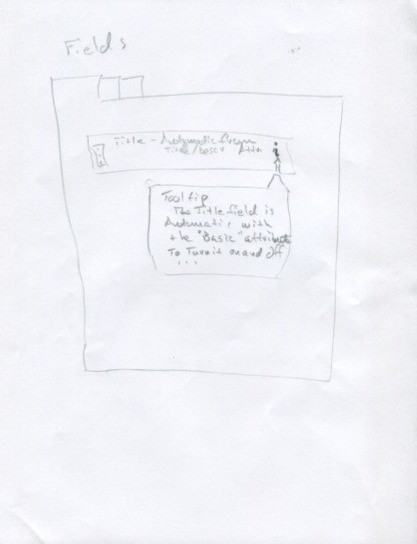 Fields
Title - Automatic from
Title/Descr Attr
Tooltip
The Title field is
Automatic with
the "Basic" attribute
To Turn it on and off
...